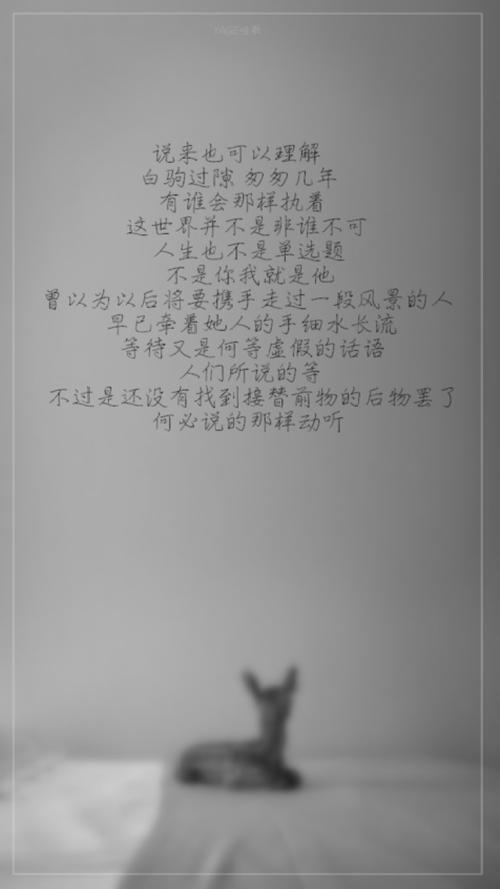 说来也可以理解
白驹过隙 匆匆几年
有谁会那样执着
这世界并不是非谁不可
人生也不是单选题
不是你我就是他
曾以为以后将要携手走过一段风景的人
早已牵着她人的手细水长流
等待又是何等虚假的话语
人们所说的等
不过是还没有找到接替前物的后物罢了
何必说的那样动听